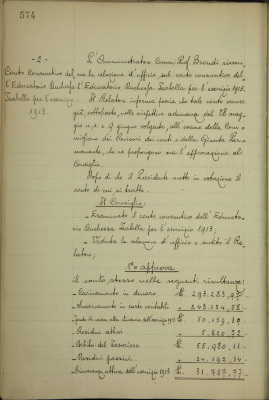 574
- 2 -
Conto Consuntivo del-
l'Educatorio Duchessa
Isabella per l'esercizio
1913.
L'Amministratore Comm. Prof. Brondi riassu-
me la relazione d'ufficio sul conto consuntivo del-
l'Educatorio Duchessa Isabella per l'esercizio 1913.
Il Relatore informa poscia che tale conto venne
già sottoposto, nelle rispettive adunanze del 28 mag-
gio u. s. e 9 giugno volgente, all'esame della Com-
missione dei Revisori dei conti e della Giunta Per-
manente, che ne propongono ora l'approvazione al
Consiglio.
Dopo di che il Presidente mette in votazione il
conto di cui si tratta.
Il Consiglio:
- Esaminato il conto consuntivo dell'Educato-
rio Duchessa Isabella per l'esercizio 1913;
- Veduta la relazione d'ufficio e sentito il Re-
latore;
approva
il conto stesso nelle seguenti risultanze:
- Caricamento in danaro £. 293.283,95
- Scaricamento in conto contabile " 243.124,56
Fondo di cassa alla chiusura dell'esercizio 1913 £. 50.159,39
- Residui attivi " 5.820,72
- Debito del Tesoriere £. 55.980,11
- Residui passivi " 24.192,34
Rimanenza attiva dell'esercizio 1913 £. 31.787,77